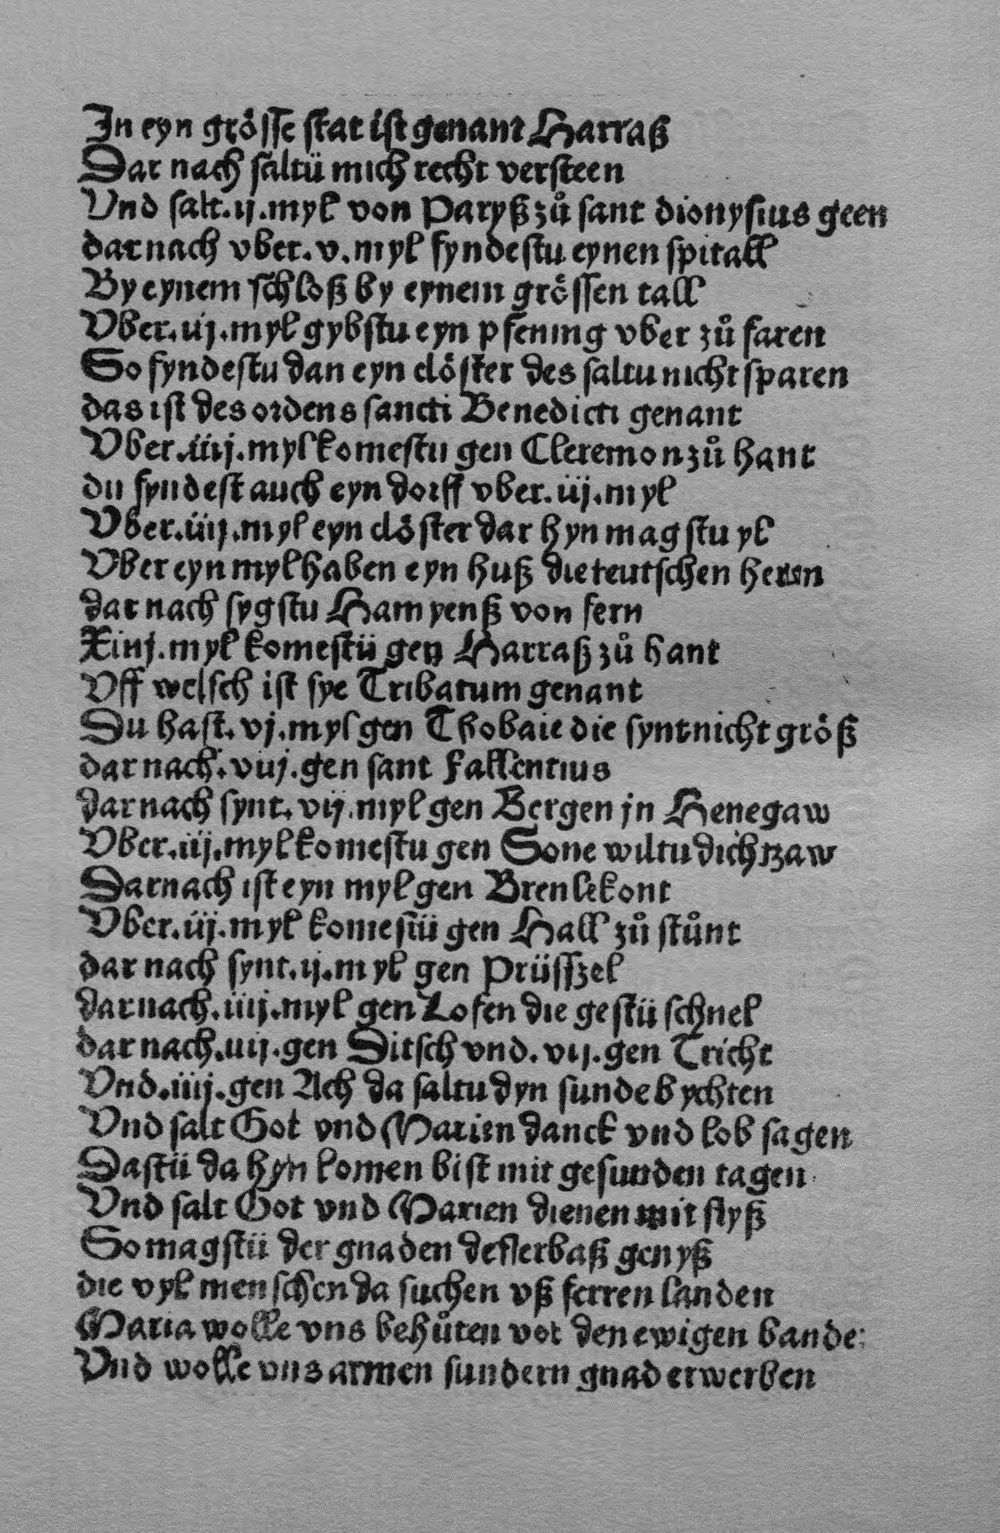 In eyn grösse stat ist genant Harraß
Dar nach saltü mich recht versteen
Vnd salt.ij.myl von Paryß zů sant dionysius geen
dar nach vber.v.myl fyndestu eynen spitall
By eynem schloß by eynem grössen tall
Vber.iij.myl gybstu eyn pfening vber zů faren
So fyndestu dan eyn clöster des saltu nicht sparen
das ist des ordens sancti Benedicti genant
Vber.iiij.myl komestu gen Cleremon zů hant
du fyndest auch eyn dorff vber.iij.myl
Vber.iiij.myl eyn clöster dar hyn mag stu yl
Vber eyn myl haben eyn huß die teutschen herrn
dar nach sygstu Hamyenß von fern
Xiiij.myl komestü gen Harraß zů hant
Vff welsch ist sye Tribatum genant
Du hast.vj.myl gen Thobaie die synt nicht größ
dar nach.viij.gen sant Fallentius
dar nach synt.vij.myl gen Bergen jn Henegaw
Vber.iij.myl komestu gen Sone wiltu dich tzaw
Darnach ist eyn myl gen Brenlekont
Vber.iij.myl komestü gen Hall zů stůnt
dar nach synt.ij.myl gen Prüsszel
dar nach.iiij.myl gen Lofen die gestü schnel
dar nach.iiij.gen Ditsch vnd.vij.gen Tricht
Vnd.iiij.gen Ach da saltu dyn sunde bychten
Vnd salt Got vnd Marien danck vnd lob sagen
Dastü da hyn komen bist mit gesunden tagen
Vnd salt Got vnd Marien dienen mit flyß
So magstü der gnaden desterbaß genyß
die vyl menschen da suchen vß ferren landen
Maria wolle vns behůten vor den ewigen bande
Vnd wolle vns armen sundern gnad erwerben